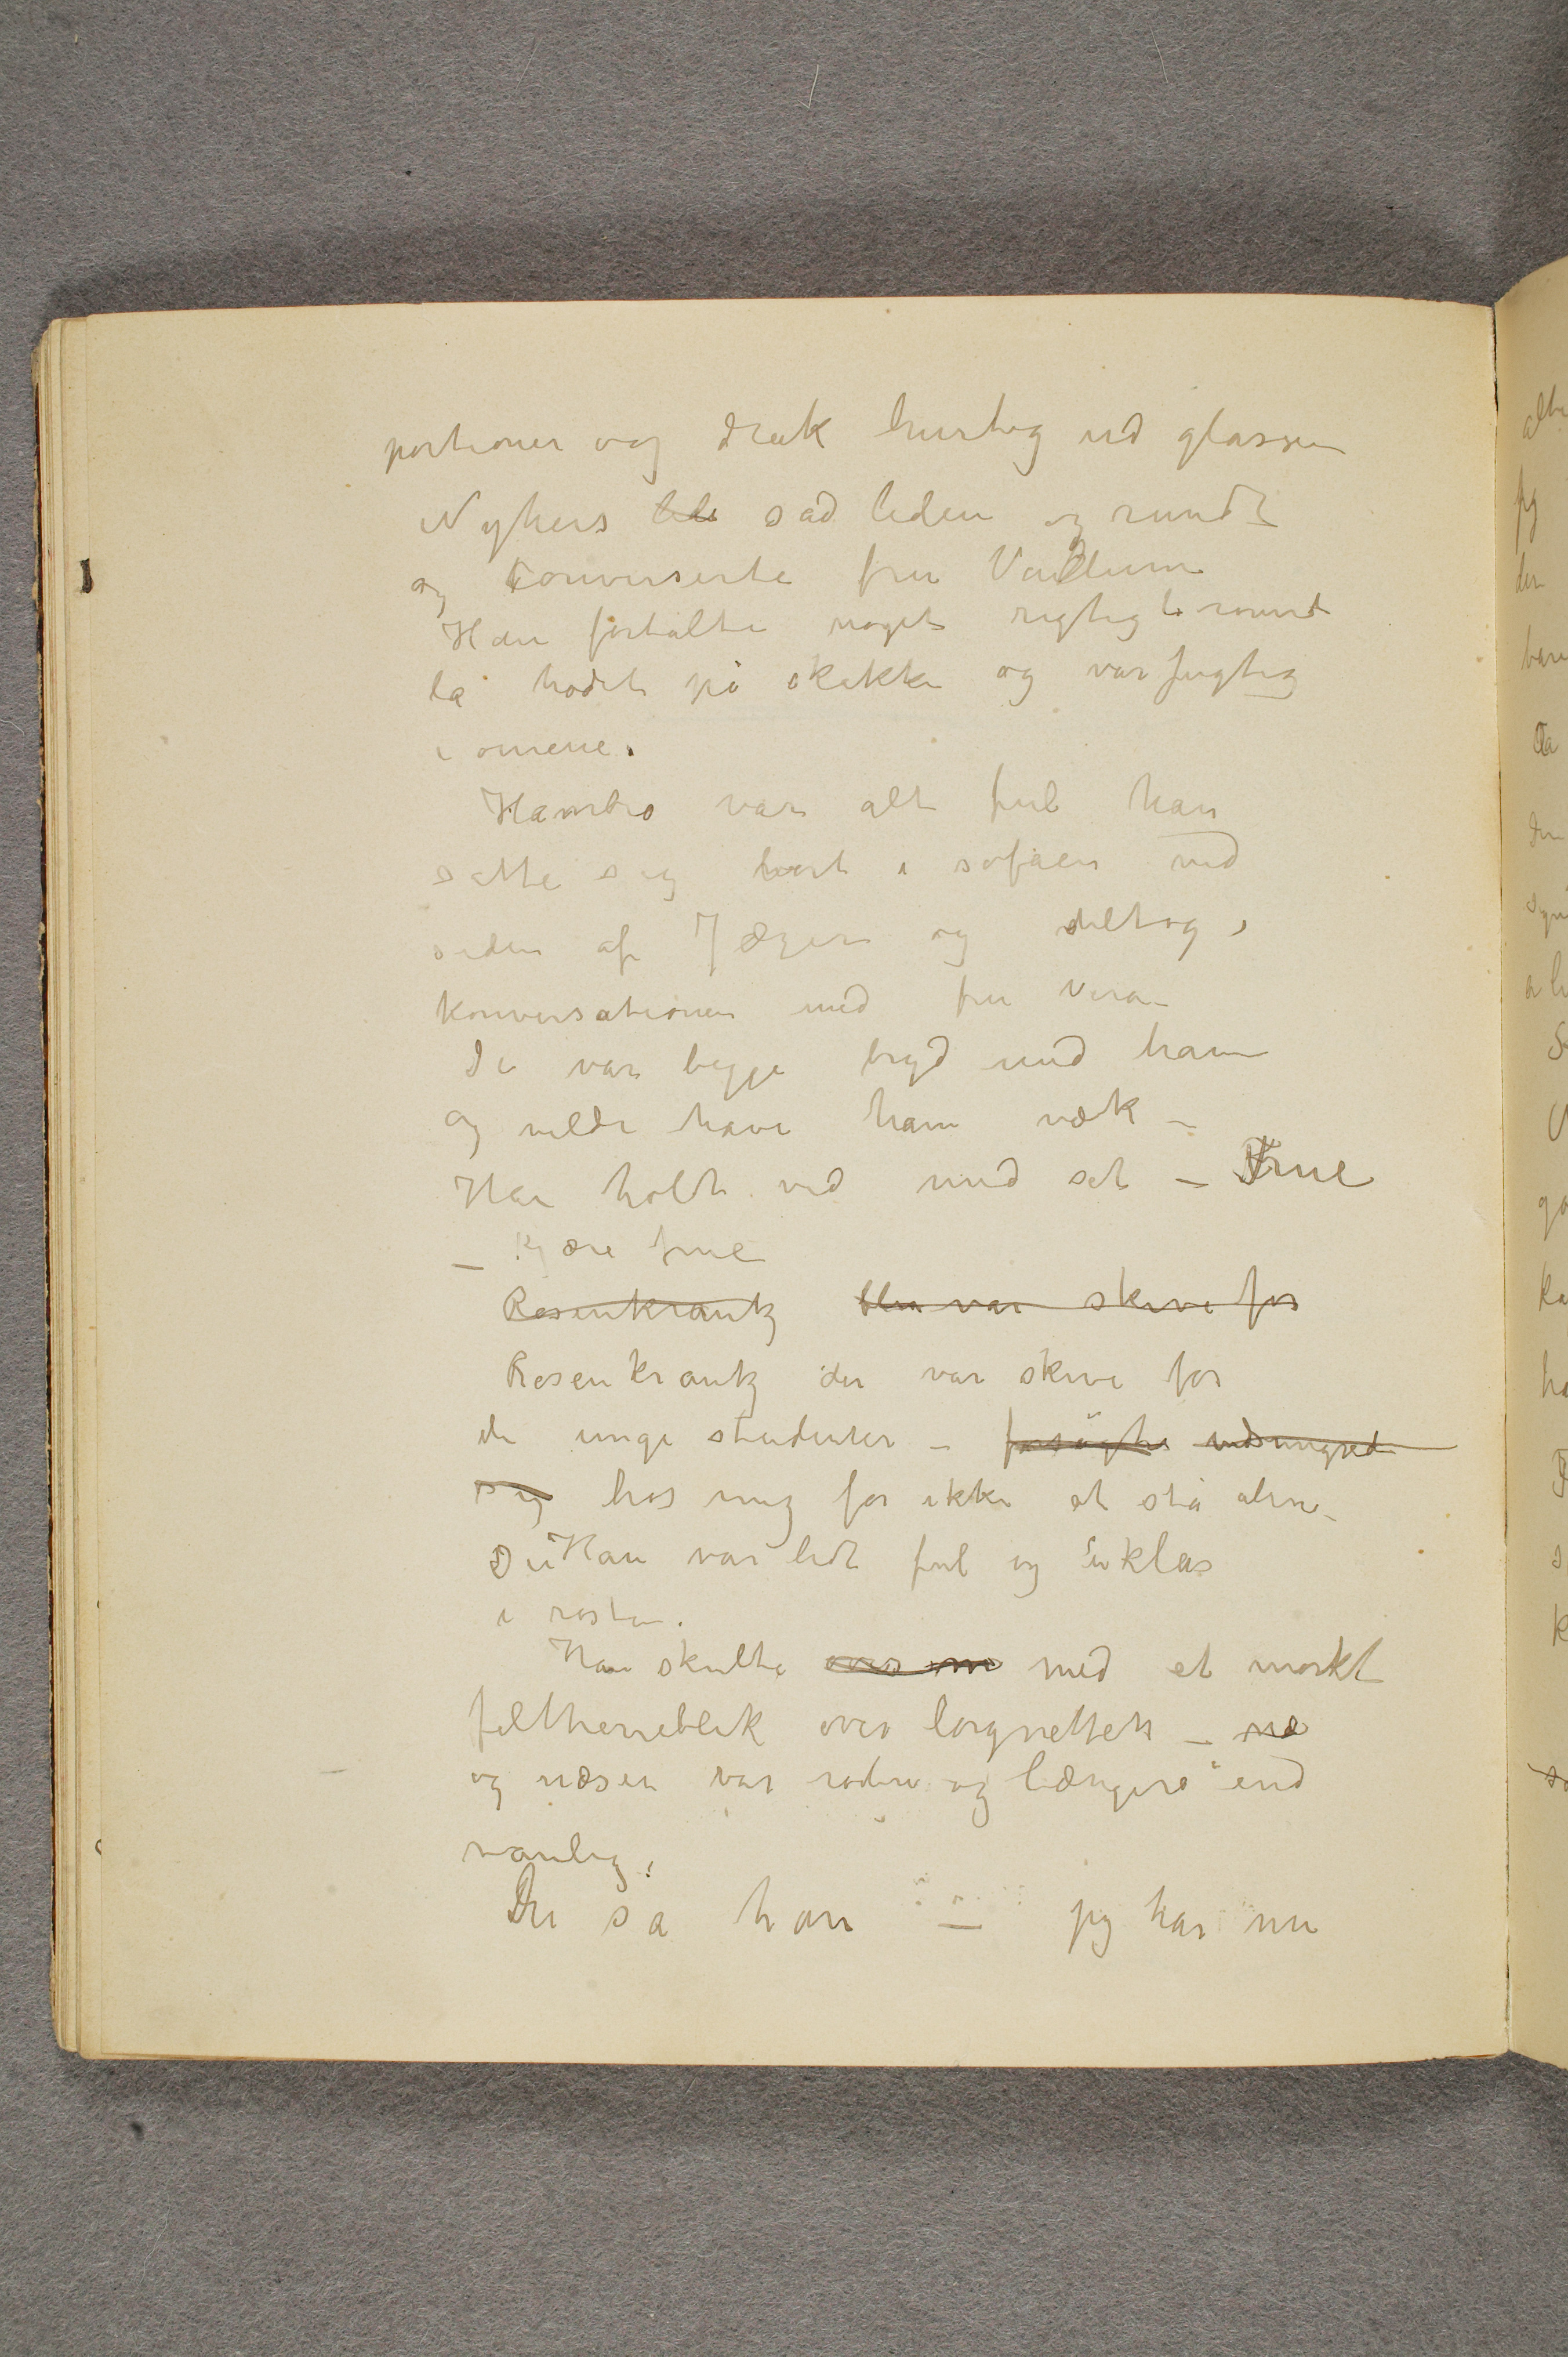 portioner og drak hurtig ud glassen
Nyhus ble sad liden og rundt
og converserte fru Vadlum
Han fortalte noget rigtigt morsomt
la hodet på skakke og var fugtig
i ørnene.
Hambro var alt ful han
satte sig bort i sofaen ved
siden af Jæger og deltog i
konversationen med fru Vera –
De var begge bryd med ham
og vilde have ham væk –
Han holdt ved med sit – Frue
– kjære frue
Rosenkrantz blev var skive for
Rosenkrantz der var skive for
de unge studenter – forsøgte
sig hos mig for ikke at stå alene –
Du Han var lidt ful og uklar
i røsten.
Han skulte over m med et mørkt
feltherreblik over lorgnettet – næ
og næsen var rødere og længere end
vanlig.
Du sa han – jeg har nu